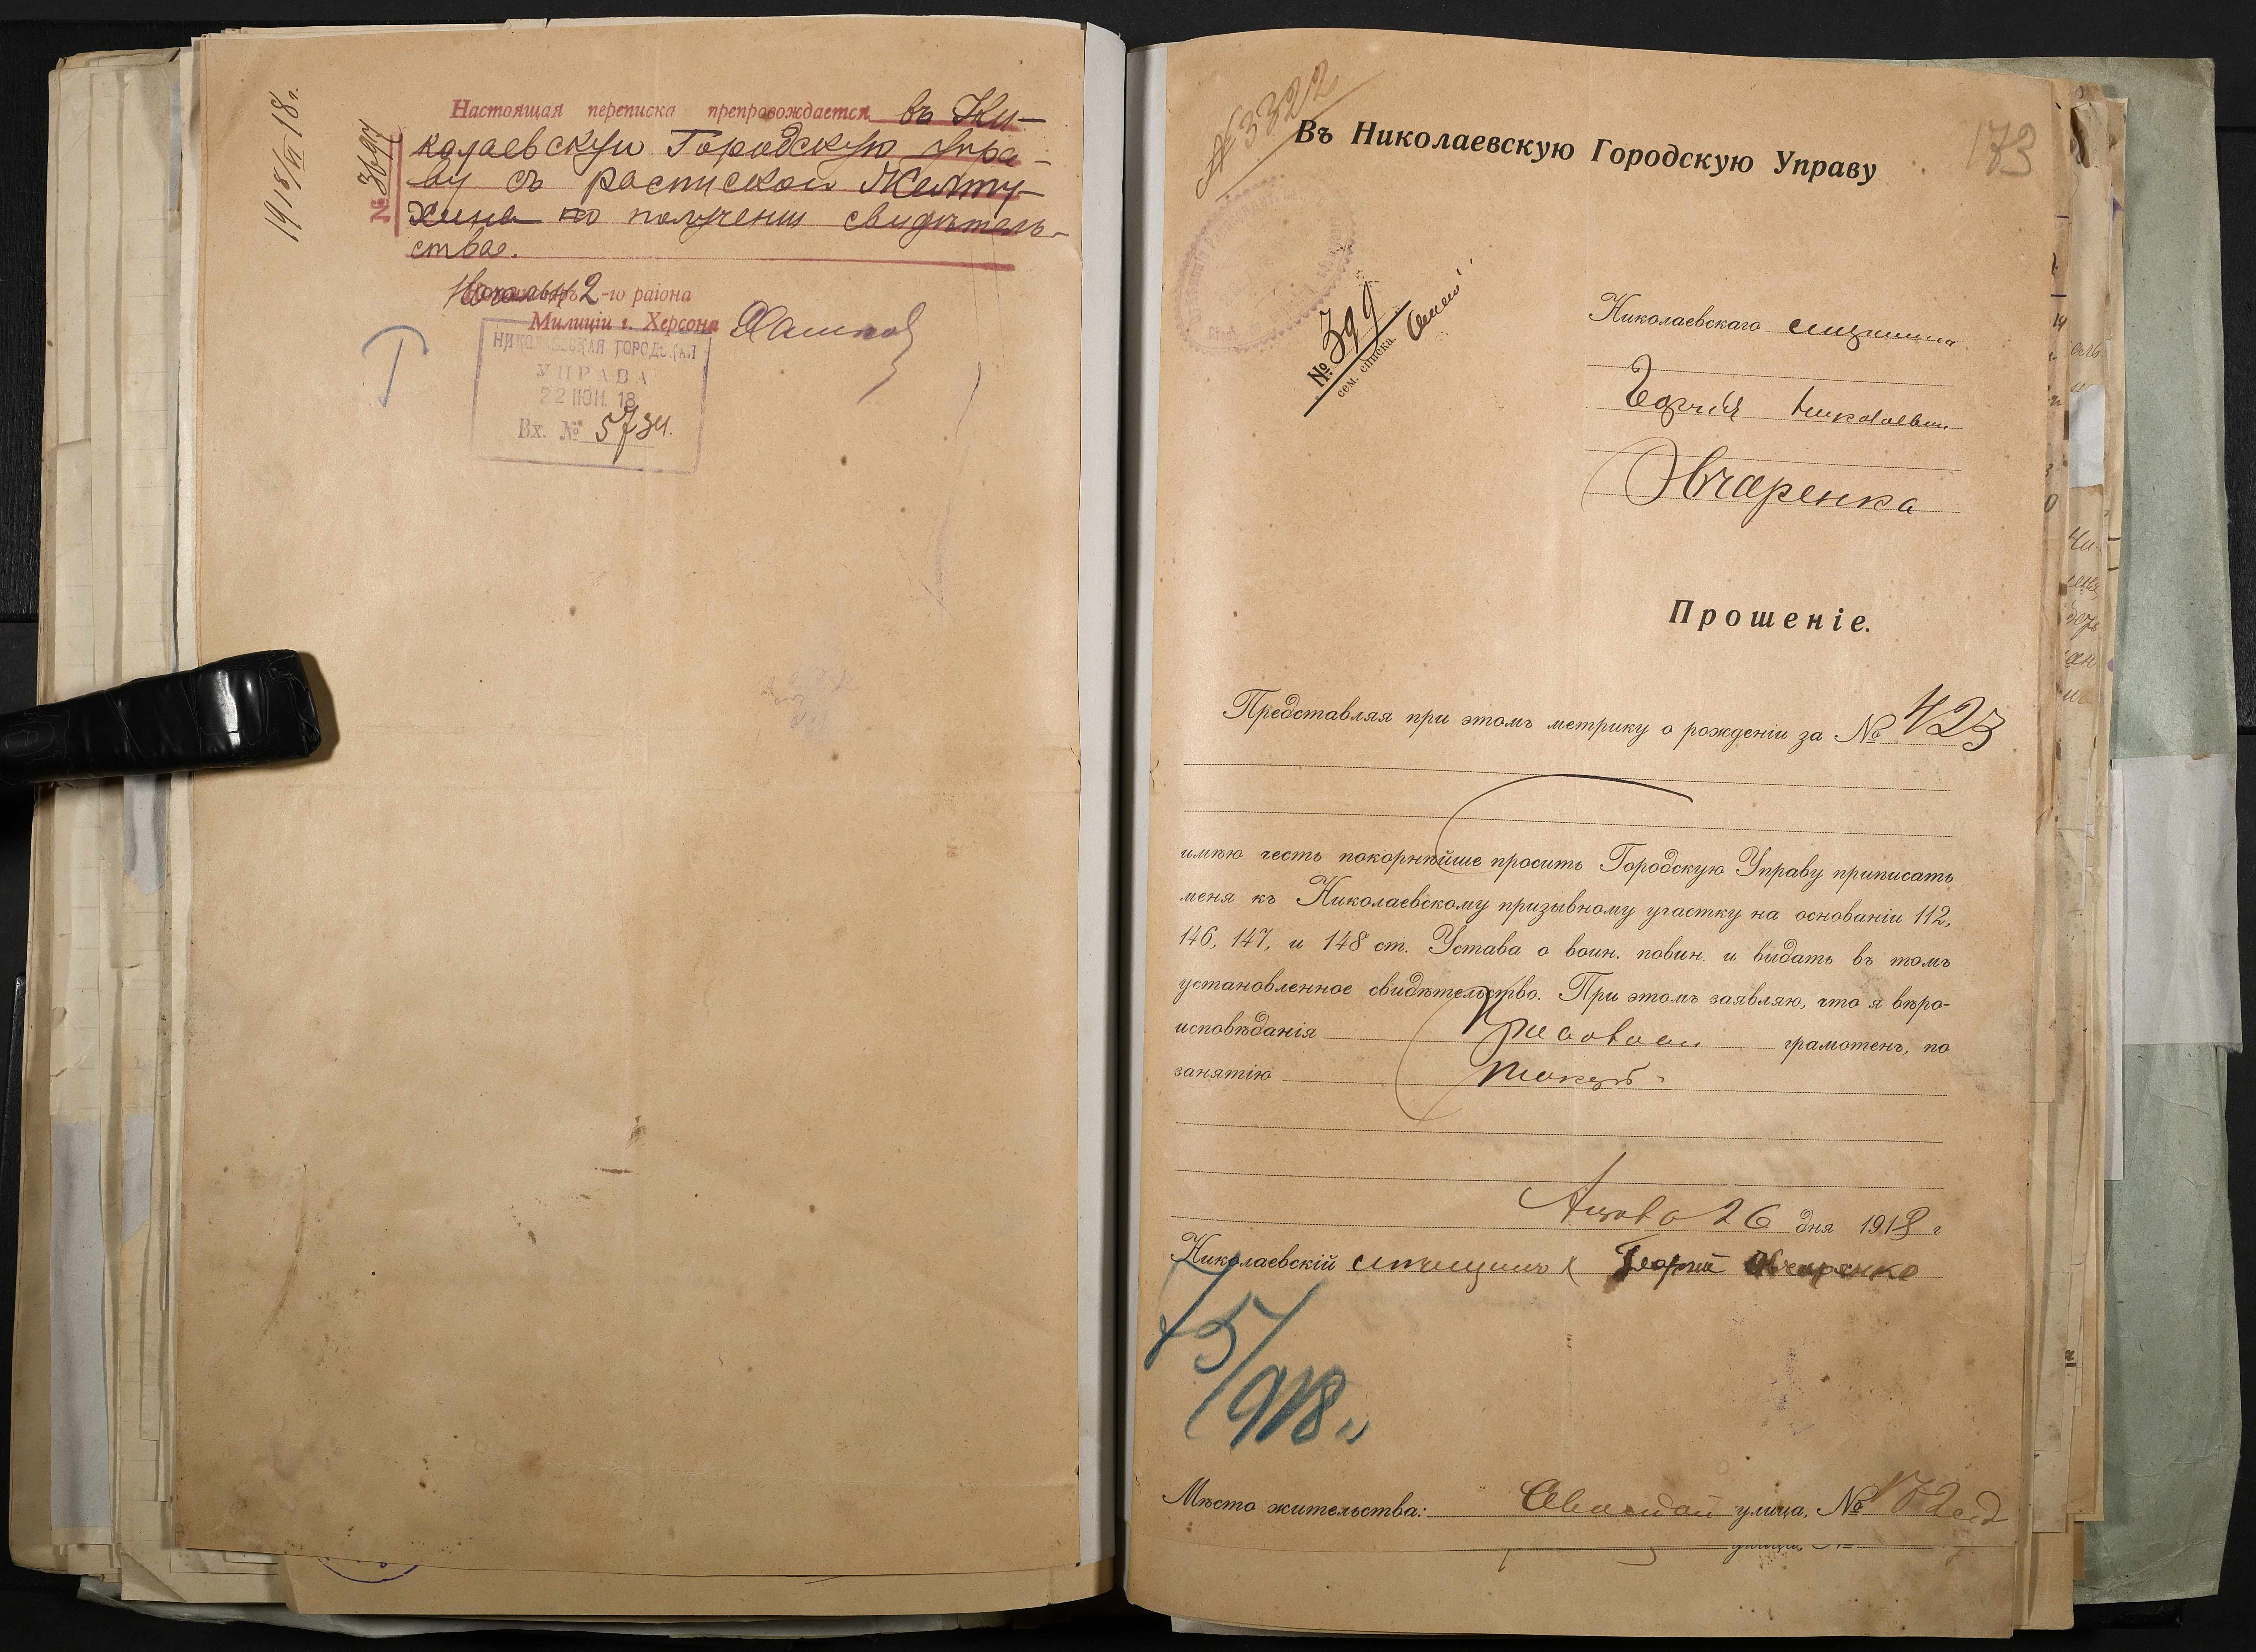 1918/VI 18 г.
№ 3697
Настоящая переписка препровождается въ Ни-
колаевскую Городскую Упра-
ву съ роспиской Желту-
хина по полученіи свидѣтель-
ства.
2-го раіона
Милиціи г. Херсона
НИКОЛАЕВСКАЯ ГОРОДСКАЯ
УПРАВА
22 ІЮН. 18
Вх. № 5734.
№ 3322
173
Въ Николаевскую Городскую Управу
№ 399
сем. списка.
Николаевскаго мѣщанина
Георгія Николаевич.
Овчаренка
Прошеніе.
Представляя при этомъ метрику о рожденіи за № 423
имѣю честь покорнѣйше просить Городскую Управу приписать
меня къ Николаевскому призывному участку на основаніи 112,
146, 147, и 148 ст. Устава о воин. повин. и выдать въ томъ
установленное свидѣтельство. При этомъ заявляю, что я вѣро-
исповѣданія грамотенъ, по
занятію токарь
26 дня 1918 г
Николаевскій мѣщанинъ Георгій Овчаренко
15/918 г
Мѣсто жительства: улица, №